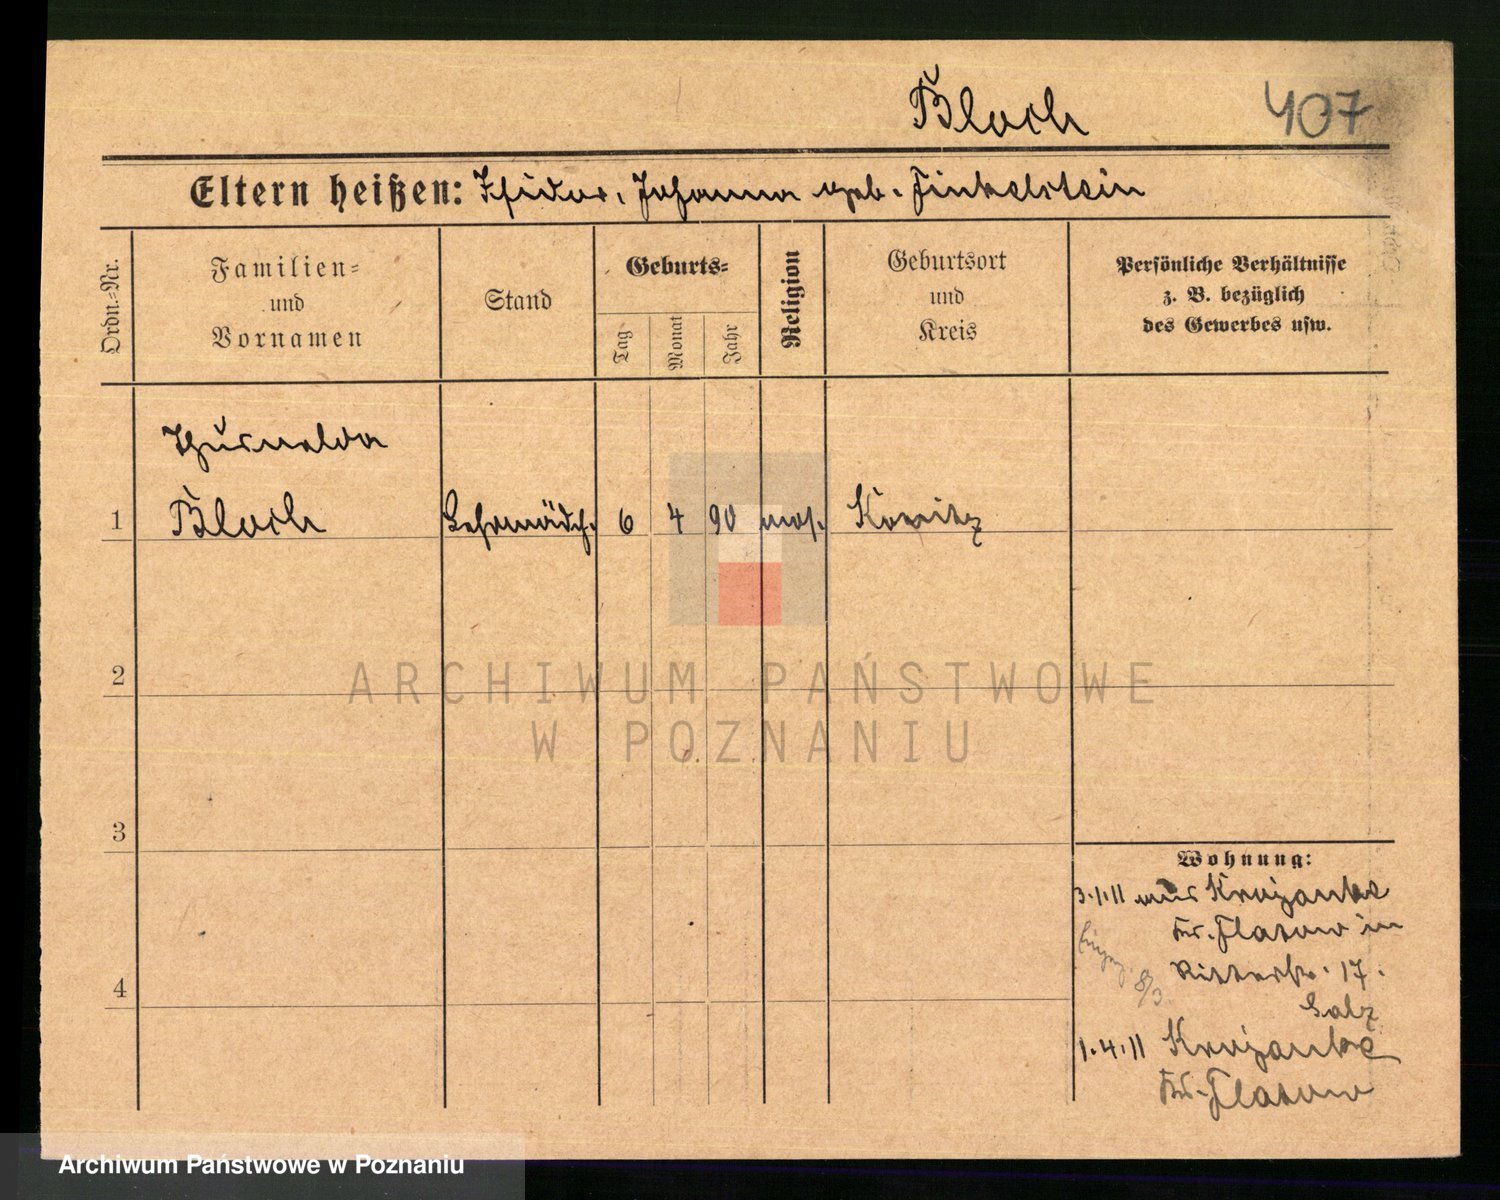 Bloch 407
Eltern heißen: Isidor, Johanna geb. Finkelstein
Ordn.=Nr.
Familien=
und
Vornamen
Stand
Geburts=
Tag
Monat
Jahr
Religion
Geburtsort
und
Kreis
Persönliche Verhältnisse
z. B. bezüglich
des Gewerbes usw.
Thusnelda
1 Bloch Lehrmädch. 6 4 90 mos. Konitz
2
ARCHIWUM PAŃSTWOWE
W POZNANIU
3
Wohnung:
3.1.11 aus Krojanke
Kr. Flatow in
Ritterstr. 17.
8/3
Salz
4
1.4.11 Krojanke
Kr. Flatow
Archiwum Państwowe w Poznaniu